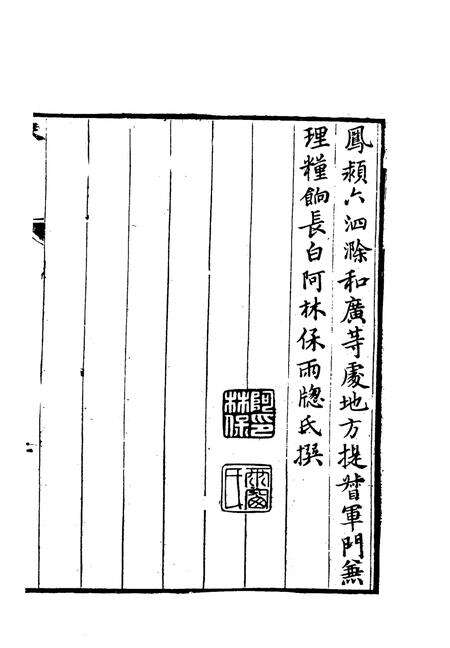 鳳潁六泗滁和廣等處地方提督軍門兼
理糧餉長白阿林保雨牕氏撰
阿林保印
雨牕氏